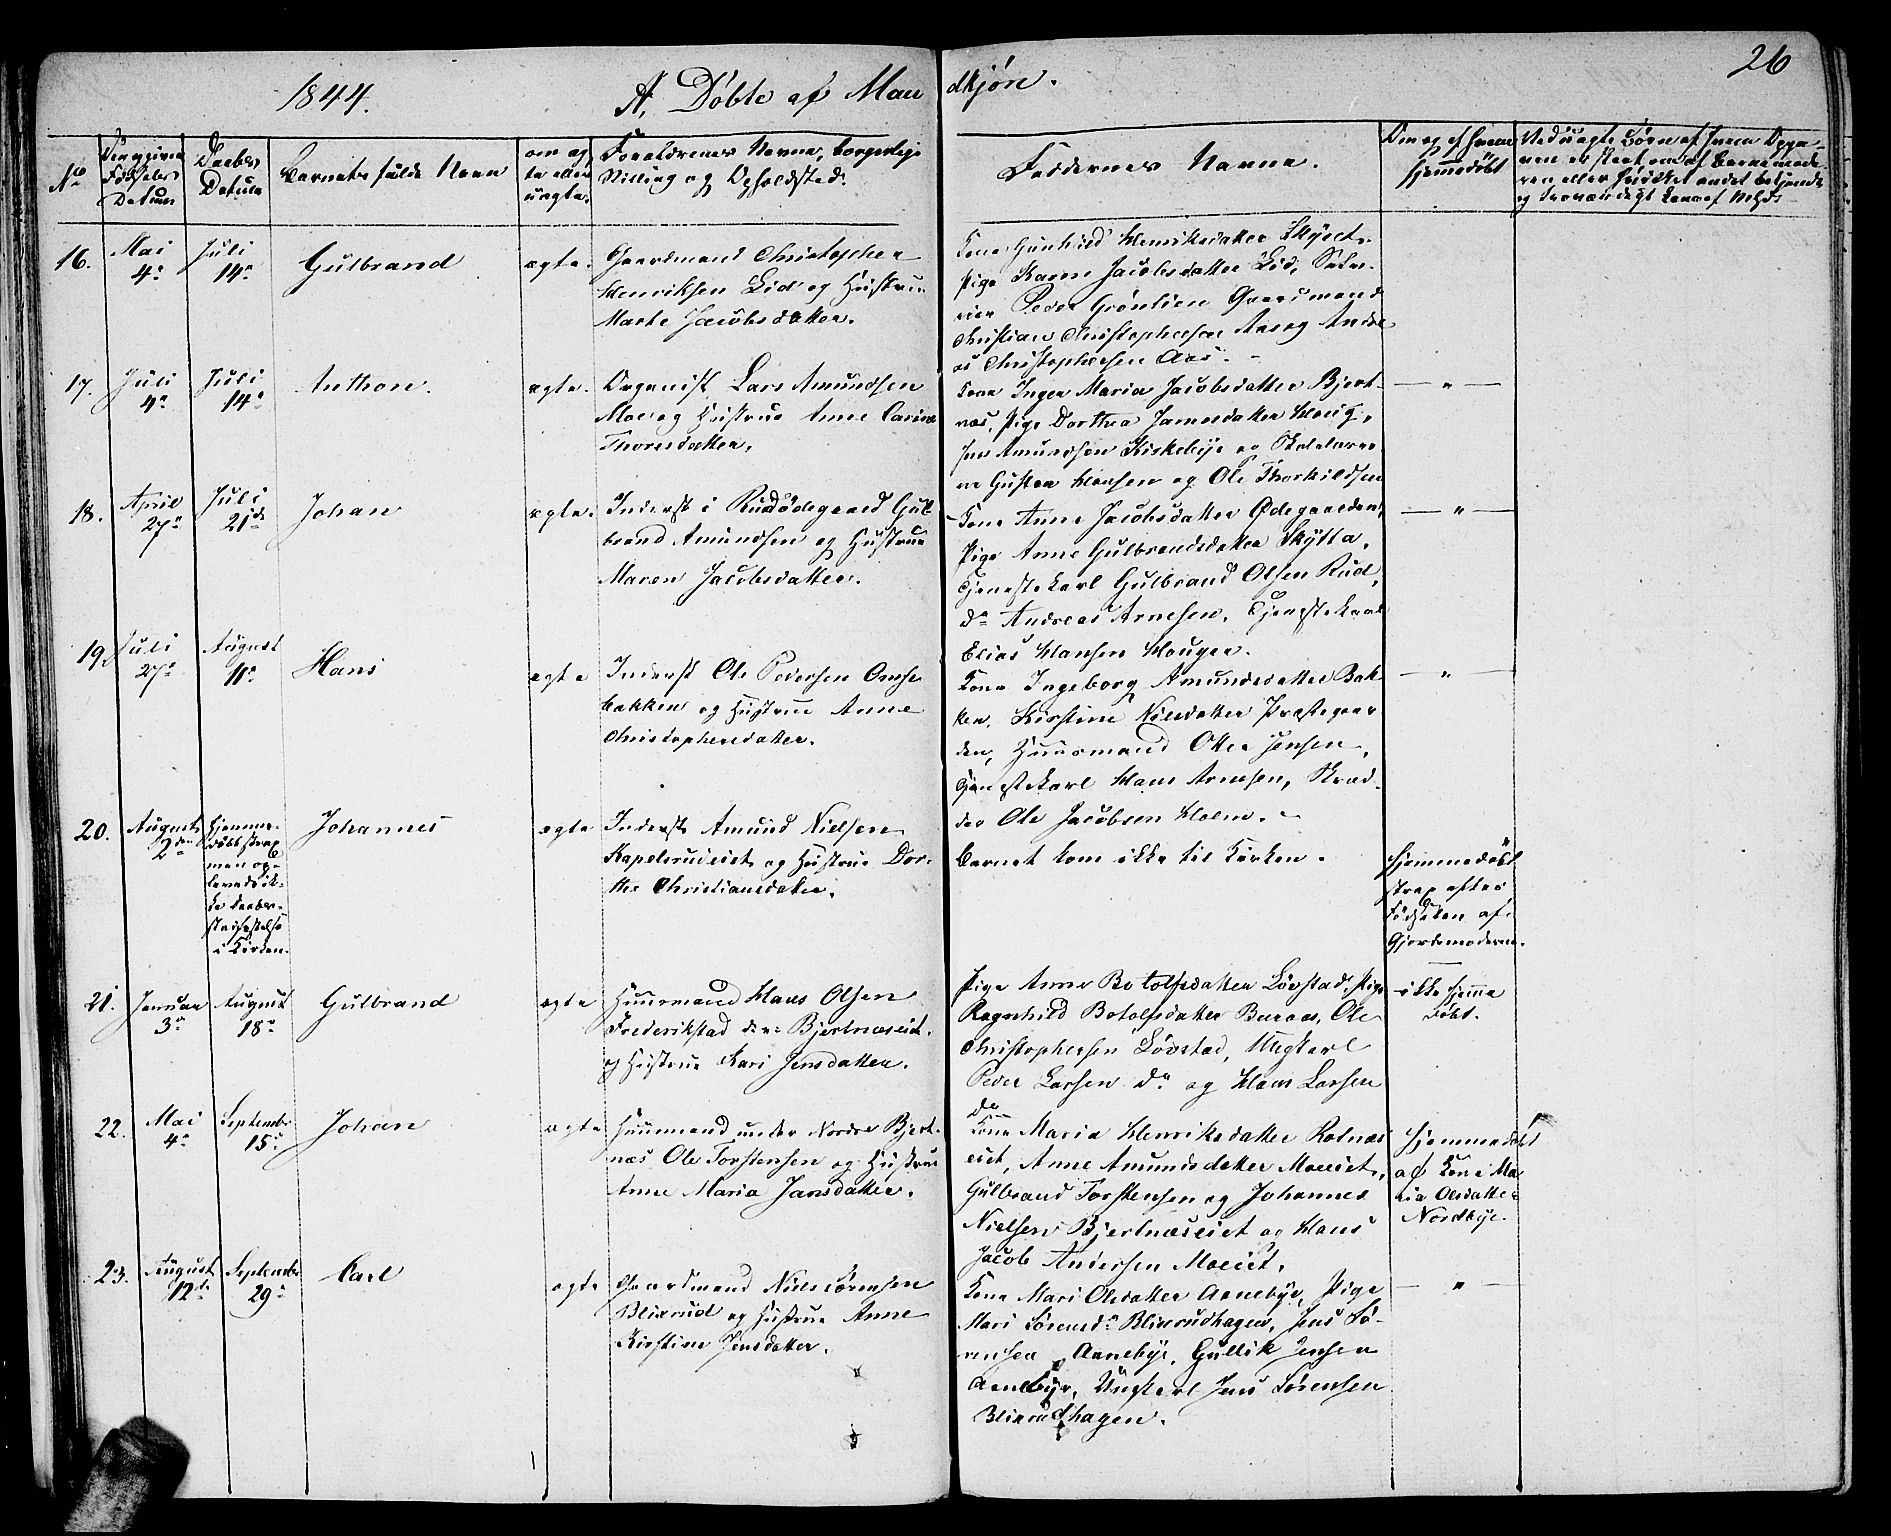 1844.
A, Døbte af Mandkjøn.
26
No
Den opgivne Fødsels Datum
Daabens Datum
Barnets fulde Navn
om ægte eller uægte.
Forældrenes Navne, borgerlige Stilling og Opholdsted.
Faddernes Navne.
Om og af hvem hjemmedøbt
16.
Mai 4de
Juli 14de
Gulbrand
ægte.
Gaardmand Christopher
Henriksen Lid og Hustrue
Marthe Jacobsdatter.
Kone Gunhild Henriksdatter Skyset,
Pige Karen Jacobsdatter Lid,
Peder Grønlien Gaardmand
Christian Christophersen Aas og Andre
as Christophersen Aas.
17.
Juli 4de
Juli 14de
Anthon.
ægte.
Organist Lars Amundsen
Moe og Hustrue Anne Carine
Thoresdatter.
Kone Inger Maria Jacobsdatter Bjert-
næs, Pige Dorthea Jansdatter Houg,
Jens Amundsen Kirkebye og Skolelære
re Gusten Hansen og Ole Thorkildsen
— " —
18.
April 27de
Juli 21de
Johan
ægte.
Inderst i Rudsødegaard Gul
brand Amundsen og Hustrue
Maren Jacobsdatter.
Kone Anne Jacobsdatter Ødegaarden,
Pige Anne Gulbrandsdatter Skytta,
Tjenestekarl Gulbrand Olsen Rud,
do Andreas Arnesen, Tjenestekarl
Elias Hansen Houger.
— " —
19.
Juli 27de
August 11te
Hans
ægte
Inderst Ole Pedersen
bakken og Hustrue Anne
Christophersdatter.
Kone Ingeborg Amundsdatter Bak
ken, Kirstine Nilsdatter Præstegaar
den, Huusmand Otter Jensen,
Tjenestekarl Hans Arnesen, Skræd-
der Ole Jacobsen Holm.
— " —
20.
August 2den
Hjemme-
døbt strax
men op-
levede ik-
ke Daabs-
stadfæstelse
i Kirken.
Johannes
ægte
Inderst Amund Nielsen
Kapelsrudeiet og Hustrue Dor-
the Christiansdatter.
Barnet kom ikke til Kirken.
Hjemmedøbt
strax efter
Fødselen af
Gjordemoderen.
21.
Januar 3de
August 18de
Gulbrand
ægte
Huusmand Hans Olsen
Frederikstad Bjertnæseiet,
og Hustrue Kari Jensdatter.
Pige Anne Botolfsdatter Løvstad, Pige
Ragnhild Botolfsdatter Buraas, Ole
Christophersen Løvstad, Ungkarl
Peder Larsen do og Hans Larsen
do
ikke hjemme
døbt.
22.
Mai 4de
September 15de
Johan
ægte
Huusmand under Nordre Bjert-
næs Ole Torstensen og Hustrue
Anne Maria Jansdatter.
Kone Maria Henriksdatter Rotnæs
eiet, Anne Amundsdatter Moeeiet,
Gulbrand Torstensen og Johannes
Nielsen Bjertnæseiet og Hans
Jacob Andersen Moeiet.
Hjemmedøbt
af Kone Ma
ria Olsdatter
Nordbye.
23.
August 12te
September 29de
Carl
ægte
Gaardmand Niels Sørensen
Blixrud og Hustrue Anne
Kirstine Jensdatter.
Kone Mari Olsdatter Aanebye, Pige
Mari Sørensdr Blixrudhagen, Jens Sø-
rensen Aanebye, Gullik Jensen
Aanebye, Ungkarl Jens Sørensen
Blixrudhagen.
— " —